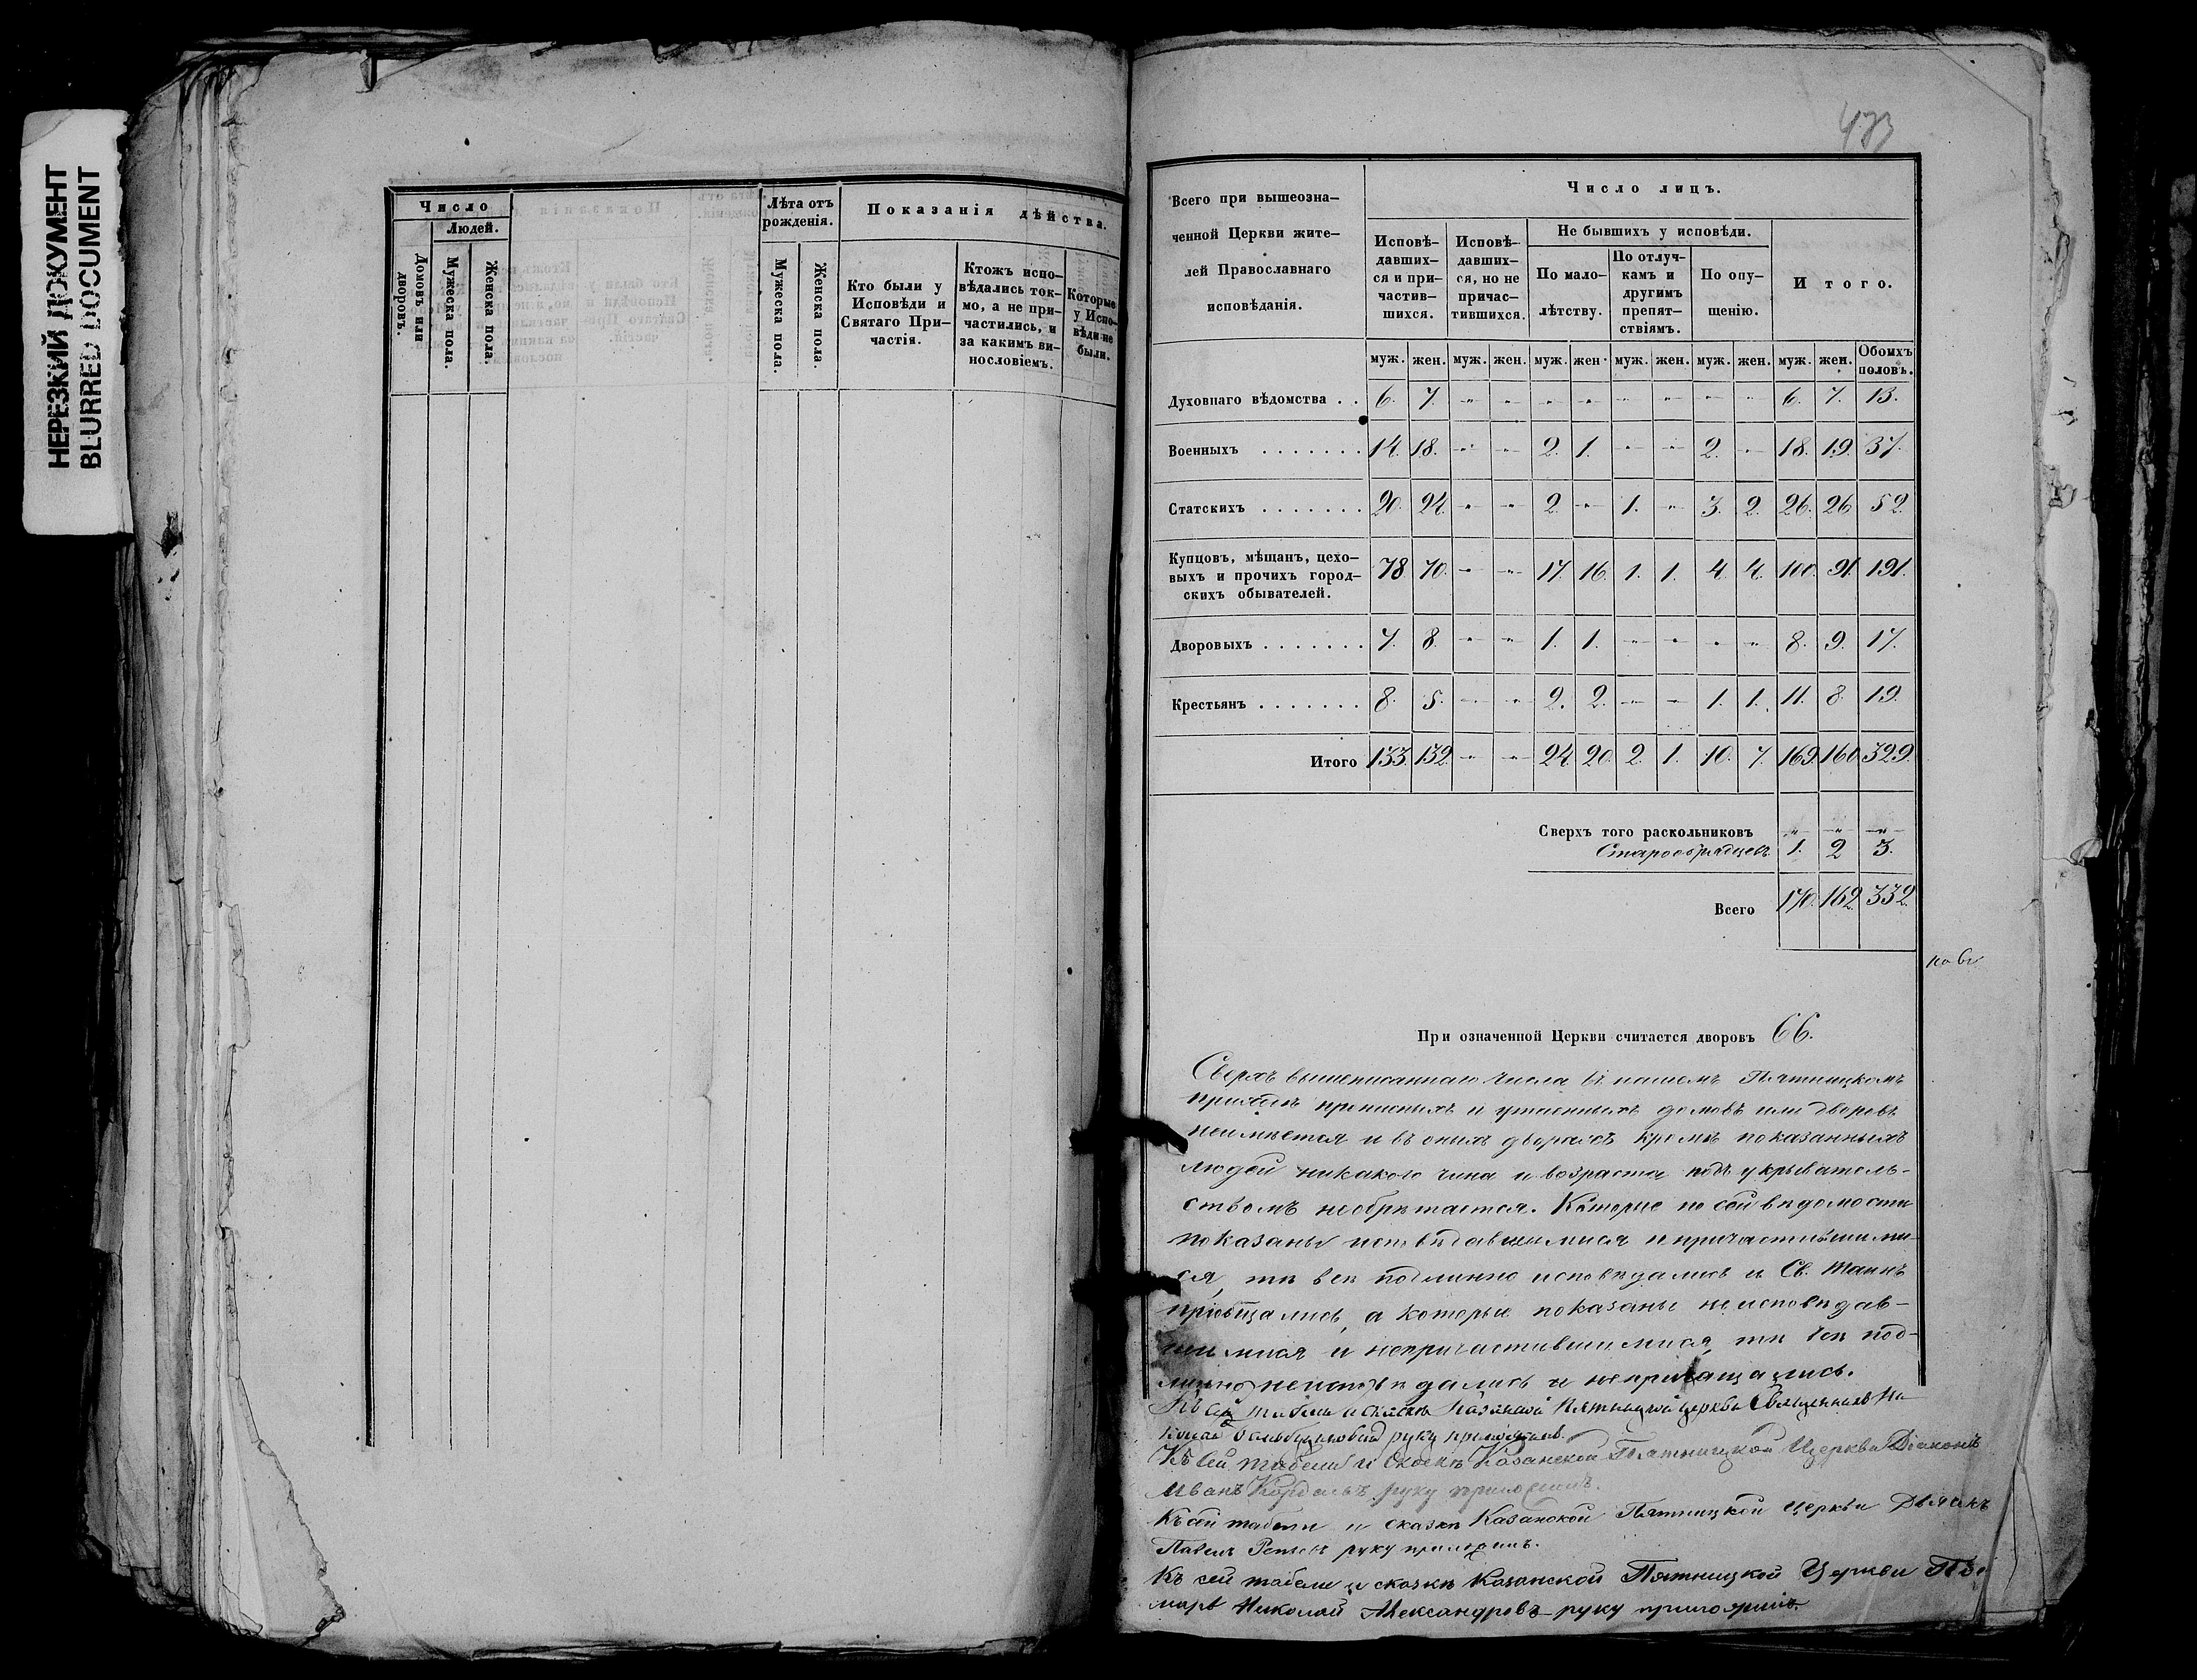 НЕРЕЗКИЙ ДОКУМЕНТ
BLURRED DOCUMENT
Число
Людей.
Домовъ или дворовъ.
Мужеска пола.
Женска пола.
Лѣта отъ рожденія.
Мужеска пола.
Женска пола.
Показанія дѣйства.
Кто были у Исповѣди и Святаго Причастія.
Ктожъ исповѣдались токмо, а не причастились, и за какимъ винословіемъ.
Которые у Исповѣди не были.
473
Всего при вышеозначенной Церкви жителей Православнаго исповѣданія.
Число лицъ.
Исповѣдавшихся и причастившихся.
Исповѣдавшихся, но не причастившихся.
Не бывшихъ у исповѣди.
По малолѣтству.
По отлучкамъ и другимъ препятствіямъ.
По опущенію.
Итого.
муж. жен. муж. жен. муж. жен. муж. жен. муж. жен. муж. жен. Обоихъ половъ.
Духовнаго вѣдомства . . 6. 7. -"- -"- -"- -"- -"- -"- -"- -"- 6. 7. 13.
Военныхъ . . . . . . . 14. 18. -"- -"- 2. 1. -"- -"- 2. -"- 18. 19. 37.
Статскихъ . . . . . . . 20. 24. -"- -"- 2. -"- 1. -"- 3. 2. 26. 26 52
Купцовъ, мѣщанъ, цеховыхъ и прочихъ городскихъ обывателей. 78. 70. -"- -"- 17. 16. 1. 1. 4. 4. 100. 91. 191.
Дворовыхъ . . . . . . . 7. 8. -"- -"- 1. 1. -"- -"- -"- -"- 8. 9. 17.
Крестьянъ . . . . . . . 8. 5. -"- -"- 2. 2. -"- -"- 1. 1. 11. 8. 19.
Итого 133. 132. -"- -"- 24. 20. 2. 1. 10. 7. 169. 160. 329.
Сверхъ того раскольниковъ -"- -"- -"-
Старообрядцевъ 1. 2 3.
Всего 170. 162. 332.
При означенной Церкви считается дворовъ 66.
Сверхъ вышеписаннаго числа въ нашемъ Пятницкомъ
приходѣ прописныхъ и утаенныхъ домовъ или дворовъ
неимѣется и въ оныхъ дворахъ кромѣ показанныхъ
людей никакого чина и возраста подъ укрыватель-
ствомъ необрѣтается. Которые по сей вѣдомости
показаны исповѣдавшимися и причастившими-
ся, тѣ всѣ подлинно исповѣдались и Св. Таинъ
пріобщались, а которые показаны неисповѣдав-
шимися и непричастившимися, тѣ всѣ под-
линно неисповѣдались и непріобщались.
Къ сей табели и сказкѣ Казанской Пятницкой церкви Священникъ Ни-
колай руку приложилъ.
Къ сей табели и сказкѣ Казанской Пятницкой Церкви Діаконъ
Иванъ руку приложилъ.
Къ сей табели и сказкѣ Казанской Пятницкой церкви Дьячекъ
Павелъ руку приложилъ.
Къ сей табели и сказкѣ Казанской Пятницкой Церкви Поно-
марь Николай Александровъ руку приложилъ.